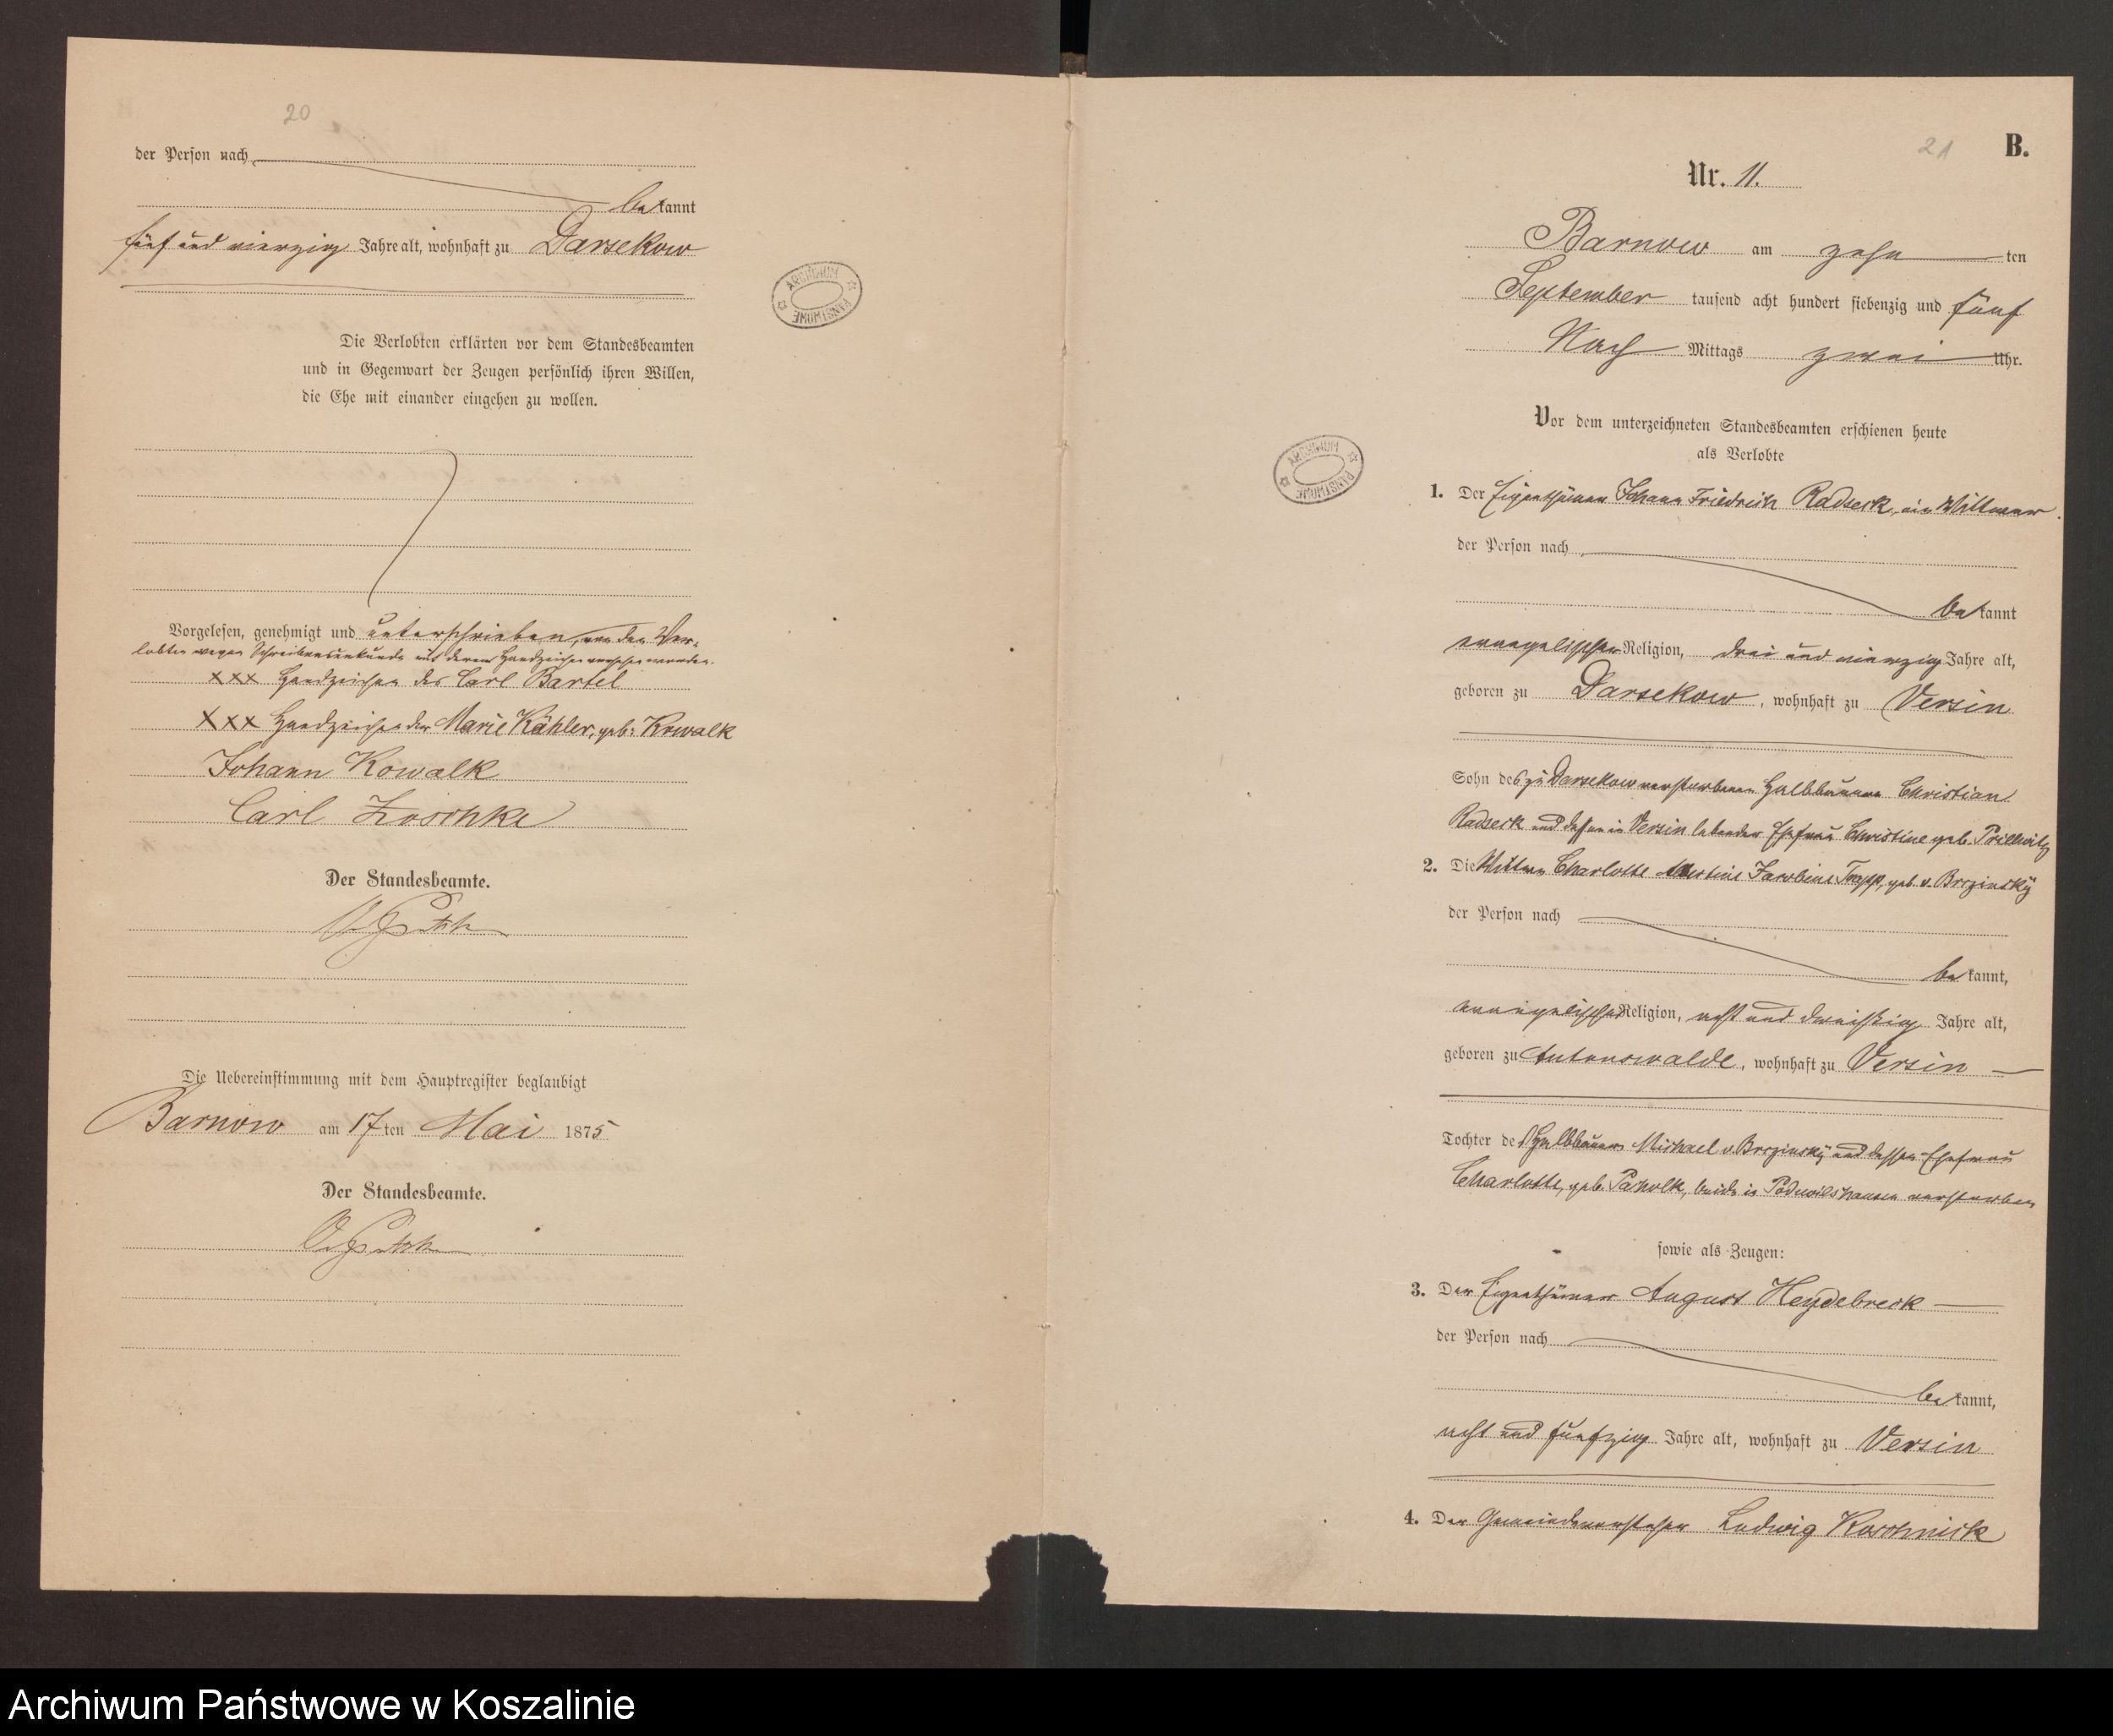 20
der Person nach
bekannt
fünf und vierzig Jahre alt, wohnhaft zu Darsekow
Die Verlobten erklärten vor dem Standesbeamten
und in Gegenwart der Zeugen persönlich ihren Willen,
die Ehe mit einander eingehen zu wollen.
Vorgelesen, genehmigt und unterschrieben, von den Ver-
lobten wegen Schreibensunkunde mit deren Handzeichen versehen worden.
XXX Handzeichen des Carl Bartel
XXX Handzeichen der Marie Kähler, geb: Kowalk
Johann Kowalk
Carl Zoschke
Der Standesbeamte.
Die Uebereinstimmung mit dem Hauptregister beglaubigt
Barnow am 17ten Mai 1875
Der Standesbeamte.
ARCHIWUM PAŃSTWOWE
21
B.
Nr. 11.
Barnow am zehn ten
September tausend acht hundert siebenzig und fünf
Nach Mittags zwei Uhr.
Vor dem unterzeichneten Standesbeamten erschienen heute
als Verlobte
ARCHIWUM PAŃSTWOWE
1. Der Eigenthümer Johann Friedrich Radseck, ein Wittwer
der Person nach
bekannt
evangelischer Religion, drei und vierzig Jahre alt,
geboren zu Darsekow, wohnhaft zu Versin
Sohn des zu Darsekow verstorbenen Halbbauern Christian
Radseck und dessen in Versin lebenden Ehefrau Christine geb. Prillwitz
2. Die Wittwe Charlotte Jacobine Trapp, geb. v. Brezinsky
der Person nach
bekannt,
evangelischer Religion, acht und dreißig Jahre alt,
geboren zu Antonswalde, wohnhaft zu Versin
Tochter des Halbbauern Michael v. Brezinsky und dessen Ehefrau
Charlotte, geb. beide in Podewilshausen verstorben
sowie als Zeugen:
3. Der Eigenthümer August Heydebreck
der Person nach
bekannt,
acht und fünfzig Jahre alt, wohnhaft zu Versin
4. Der Gemeindevorsteher Ludwig Koschnick
Archiwum Państwowe w Koszalinie